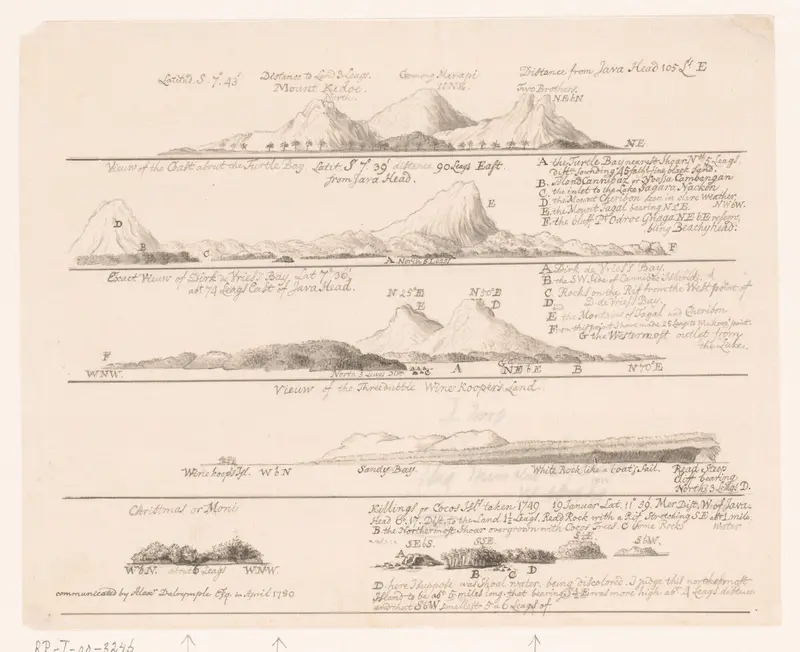 Latitud. S 7° 43'
Distance to Land 3 Leags.
Mount Kedoe.
North
Gonong Marapi
NNE.
Distance from Java Head 105 Ls. E
Two Brothers.
NE b N
NE
Vieuw of the Coast about the Turtle Bay Latit. S 7° 39' distance 90 Leags East
from Java Head.
A the Turtle Bay nearest Shoar Nth 5 Leags
dist. sounding 45 fath. fine black Sand
B. Island Cannibaz or Noessa Cambangan
C. the inlet to the Lake Sagara Nackon
D. the Mount Cheribon seen in clare weather
NW b W.
E. the Mount Tagal bearing N b E.
F. the bluff Pt. Odroe Ghaga NE b E resem-
bling Beachyhead.
D
E
B
C
A North 5 Leags
F
Exact Vieuw of Dirk de Vries's Bay, Lat 7° 36'
abt 74 Leags East of Java Head.
A Dirk de Vries's Bay.
B the SW. Side of Cannibaz Island
C Rocks on the Rif from the West point of
D. de Vries's Bay.
D
E and the Montains of Tagal and Cheribon
F from this point I have made 25 Leags to Winkoops point.
G the Westermost outlet from
the Lake.
N 25° E
E
N 30° E
D
F
WNW.
North 3 Leags Dist.
C
A
G
NE b E
B
N 70° E
Vieuw of the Threedubble Wine Koopers Land.
Winekoops Isl.
W b N
Sandy Bay.
White Rock like a Boat's Sail.
Read Steep
Cliff bearing
North 3 Leags D.
Christmas or Moni
W b N.
about 6 Leags
WNW.
communicated by Alexr Dalrymple Esq. in April 1780
Killings or Cocos Islds taken 1749 19 Januar Lat. 11° 39. Mer Dist. W of Java
Head 6° 17. Dist. to the Land 1½ Leags. A Redd Rock with a Rif Stretching S.E abt 1 mile.
B the Northermost Shoar overgrown with Cocos Trees. C Some Rocks
water
SE b S.
A
SSE.
B
C
D
S b E
S b W.
D here I suppose was Shoal water, being discolored. I judge this northermost
Island to be abt 5 miles long that bearing
was more high abt 4 Leags distance
and that S b W smallest 5 a 6 Leags of
RP-T-00-3246